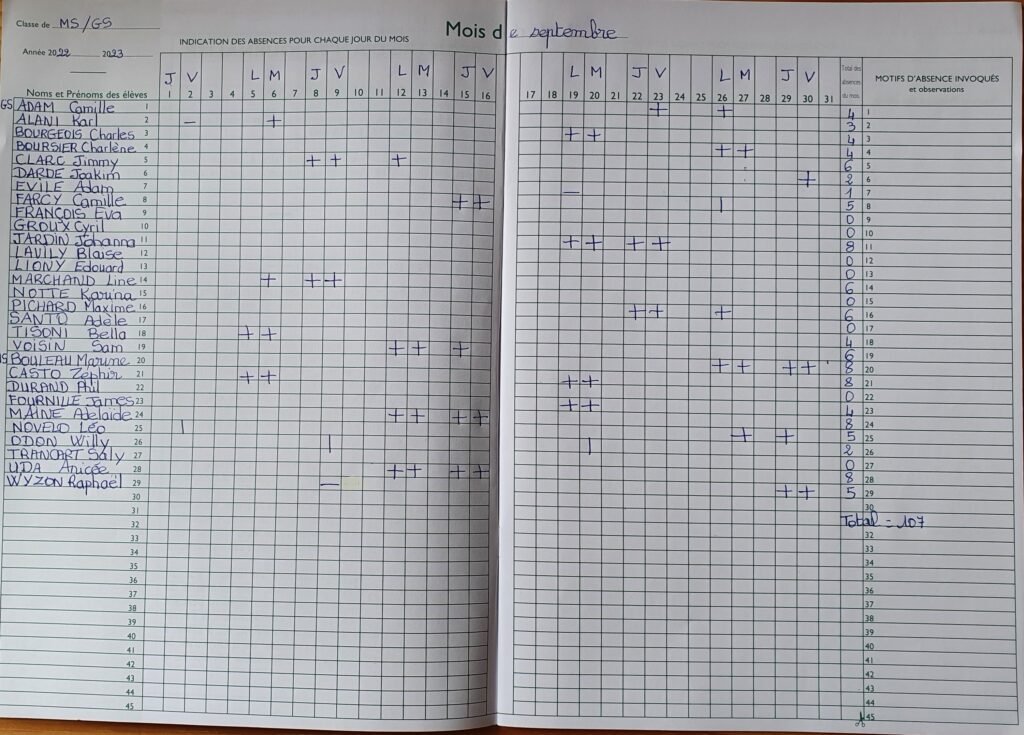 Classe de MS/GS
Mois de septembre
Année 2022 2023
INDICATION DES ABSENCES POUR CHAQUE JOUR DU MOIS
J V L M J V L M J V L M J V L M J V
Total des absences du mois
MOTIFS D'ABSENCE INVOQUÉS et observations
Noms et Prénoms des élèves 1 2 3 4 5 6 7 8 9 10 11 12 13 14 15 16 17 18 19 20 21 22 23 24 25 26 27 28 29 30 31
GS ADAM Camille 1 + + 4 1
ALANI Karl 2 – + 3 2
BOURGEOIS Charles 3 + + 4 3
BOURSIER Charlène 4 + + 4 4
CLARC Jimmy 5 + + + 6 5
DARDE Joakim 6 + 2 6
EVILE Adam 7 – 1 7
FARCY Camille 8 + + | 5 8
FRANÇOIS Eva 9 0 9
GROUX Cyril 10 0 10
JARDIN Johanna 11 + + + + 8 11
LAVILY Blaise 12 0 12
LIONY Edouard 13 0 13
MARCHAND Line 14 + + + 6 14
NOTTE Karina 15 0 15
PICHARD Maxime 16 + + + 6 16
SANTO Adèle 17 0 17
TISONI Bella 18 + + 4 18
VOISIN Sam 19 + + + 6 19
BOULEAU Marine 20 + + + + 8 20
CASTO Zéphir 21 + + + + 8 21
DURAND Phil 22 0 22
FOURNILLE James 23 + + 4 23
MAINE Adelaïde 24 + + + + 8 24
NOVELO Léo 25 | + + 5 25
ODON Willy 26 | | 2 26
TRANCART Saly 27 0 27
UDA Anicée 28 + + + + 8 28
WYZON Raphaël 29 – + + 5 29
30 30
31 Total = 107
32 32
33 33
34 34
35 35
36 36
37 37
38 38
39 39
40 40
41 41
42 42
43 43
44 44
45 45